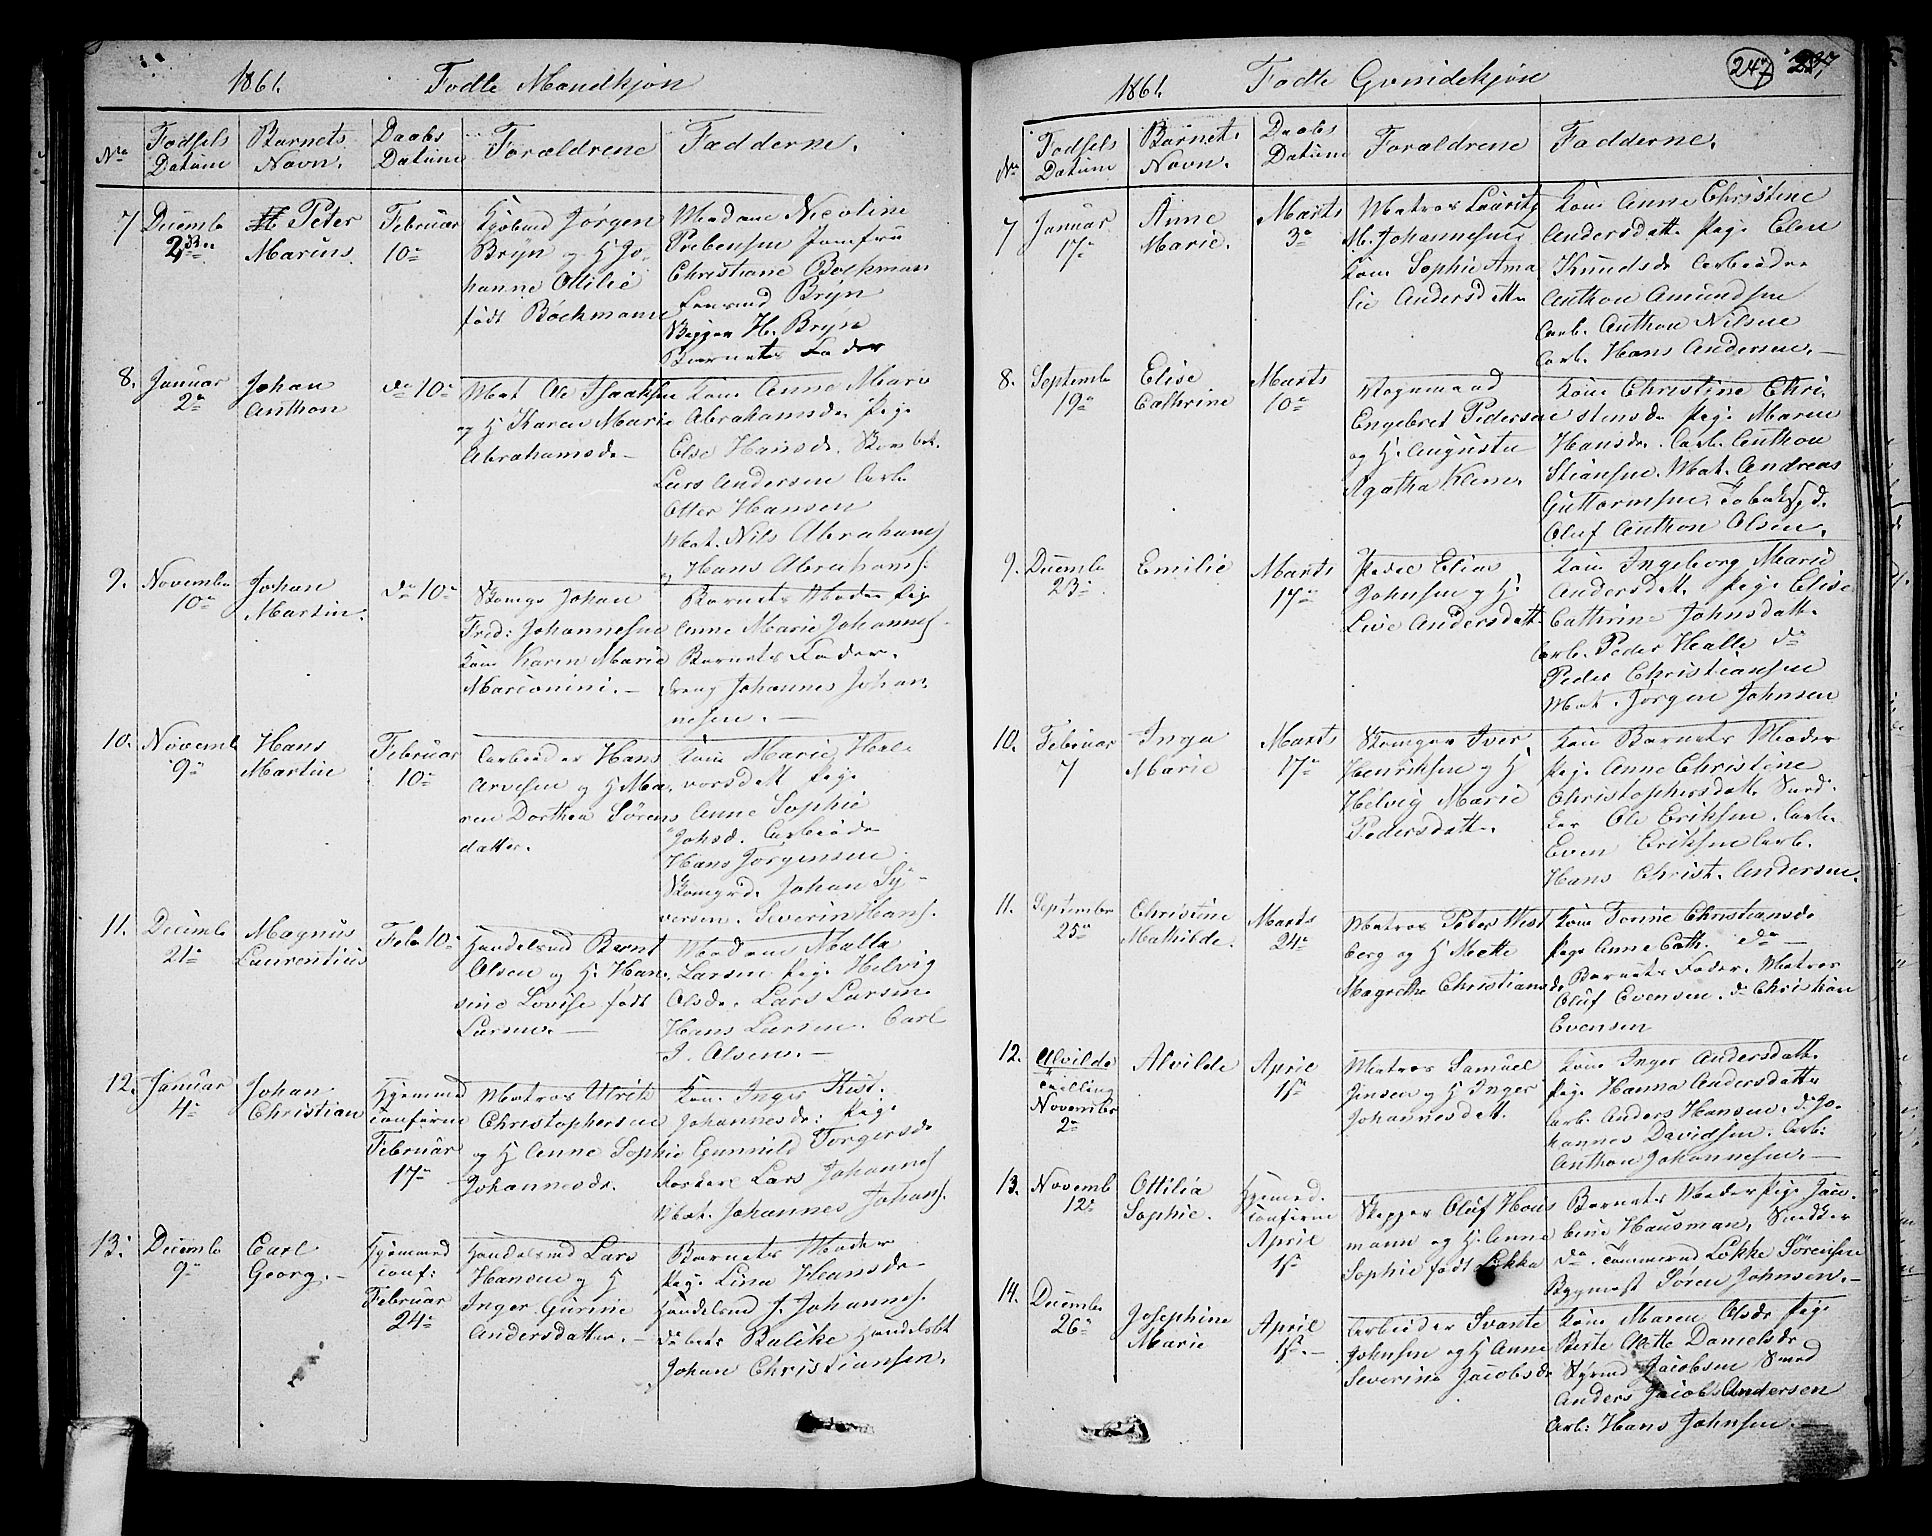 1861.
Fødte Mandkjøn
No
Fødsels
Datum
Barnets
Navn.
Daabs
Datum
Forældrene
Fadderne.
7
Decemb
Peter
Marius
Februar
10de
Jørgen
Bryn og H. Jo-
hanne Ottilie
født Bøckmann
Madame Nicoline
Jomfru
Christiane Bøckman
Bryn
Skipper H. Bryn
Barnets Fader
8.
Januar
2de
Johan
Anthon
do 10de
Mat. Ole Isaaksen
og H. Karen Marie
Abrahamsdr.
Kone Anne Marie
Abrahamsdr. Pige
Else Hansdr.
Lars Andersen Arb.
Otter Hansen
Mat. Nils Abrahams.
og Hans Abrahams.
9.
November
10de
Johan
Martin.
do 10de
Skomgr Johan
Fred: Johannesen
Kone Karen Marie
Marionini.
Barnets Moder Pige
Anne Marie Johannes.
Barnets Fader.
dreng Johannes Johan
nesen.
10.
Novemb
9de
Hans
Martin
Februar
10de
Arbeider Hans
Arvesen og H. Ma-
ren Dorthea Sørens
datter.
Kone Marie Hal-
vorsdatt Pige
Anne Sophie
Johsd. Arbeider
Hans Jørgensen
Johan Sy-
versen. Severin Hans.
11.
Decemb
21de
Magnus
Laurentius
Feb 10de
Handelsmd Bernt
Olsen og H. Han-
sine Lovise født
Larsen.
Madame Malla
Larsen Pige Helvig
Olsdr. Lars Larsen
Hans Larsen. Carl
J. Olsen.
12.
Januar
4de
Johan
Christian
Hjemmed
confirm
Februar
17de
Matros Ulrik
Christophersen
og H Anne Sophie
Johannesdr.
Kone Inger Krist.
Johannesdr: Pige
Gunnild Torgersdr
Lars Johannes
Mat. Johannes Johans.
13.
Decemb
9de
Carl
Georg.
Hjemmed
conf:
Februar
24de
Handelsmd Lars
Hansen og H
Inger Gurine
Andersdatter.
Barnets Moder
Pige Lina Hansdr.
Handelsmd J. Johannes.
Balcke Handelsbt
Johan Christiansen.
247
237
1861.
Fødte Qvindekjøn
No
Fødsels
Datum
Barnets
Navn.
Daabs
Datum
Forældrene
Fadderne.
7
Januar
17de
Anne
Marie.
Marts
3de
Matros Lauritz
M. Johannesen
Kone Sophie Ama
lie Andersdattr
Kone Anne Christine
Andersdatt. Pige Elen
Knudsdr Arbeider
Anthon Amundsen
Arb. Anthon Nilsen
Arb. Hans Andersen.
8.
Septemb
19de
Elise
Cathrine
Marts
10de
Vognmand
Engebret Pedersen
og H. Augusta
Agatha Klem.
Kone Christine Chri-
stensdr Pige Maren
Hansdr. Arb. Anthon
Stiansen. Mat. Andreas
Guttormsen.
Oluf Anthon Olsen.
9.
Decemb
23de
Emilie
Marts
17de
Peder Elias
Johnsen og H.
Live Andersdatt.
Kone Ingeborg Marie
Andersdatt. Pige Elise
Cathrine Johnsdatt.
Arb. Peder Halle do
Peder Christiansen
Mat. Jørgen Johnsen
10.
Februar
7
Inga
Marie
Marts
17de
Skomgr Iver
Henriksen og H
Helvig Marie
Pedersdatt.
Kone Barnets Moder
Pige Anne Christine
Christophersdatt. Sned-
ker Ole Eriksen. Arb.
Even Eriksen Arb.
Hans Christ. Andersen.
11.
September
25de
Christine
Mathilde.
Marts
24de
Matros Peter West
berg og H Mette
Magrethe Christiansdr
Kone Tonnie Christiansdr
Pige Anne Cath. do
Barnets Fader. Matros
Oluf Evensen. do Christian
Evensen
12.
Alvilde
Tvilling
November
2de
Alvilde
April
1ste
Matros Samuel
Jensen og H Inger
Johannesdatt.
Kone Inger Andersdatt.
Pige Hanna Andersdatt.
Arb. Anders Hansen. do Jo-
hannes Davidsen. Arb:
Anthon Johannesen.
13.
Novemb
12de
Ottilia
Sophie.
Hjemmed.
confirm
April
1ste
Skipper Oluf Haus
mann og H. Anne
Sophie født Løkke
Barnets Moder Pige Jaco-
bine Hausman, Snedker
Løkke Sørensen
Bygmest Søren Johnsen.
14.
Decemb
26de
Josephine
Marie
April
1ste
Arbeider Svante
Johnsen og H Anne
Severine Jacobsdr
Kone Maren Olsdr Pige
Berte Olette Danielsdr
Styrmd Jacobsen Smed
Anders Jacob Andersen
Arb: Hans Johnsen.